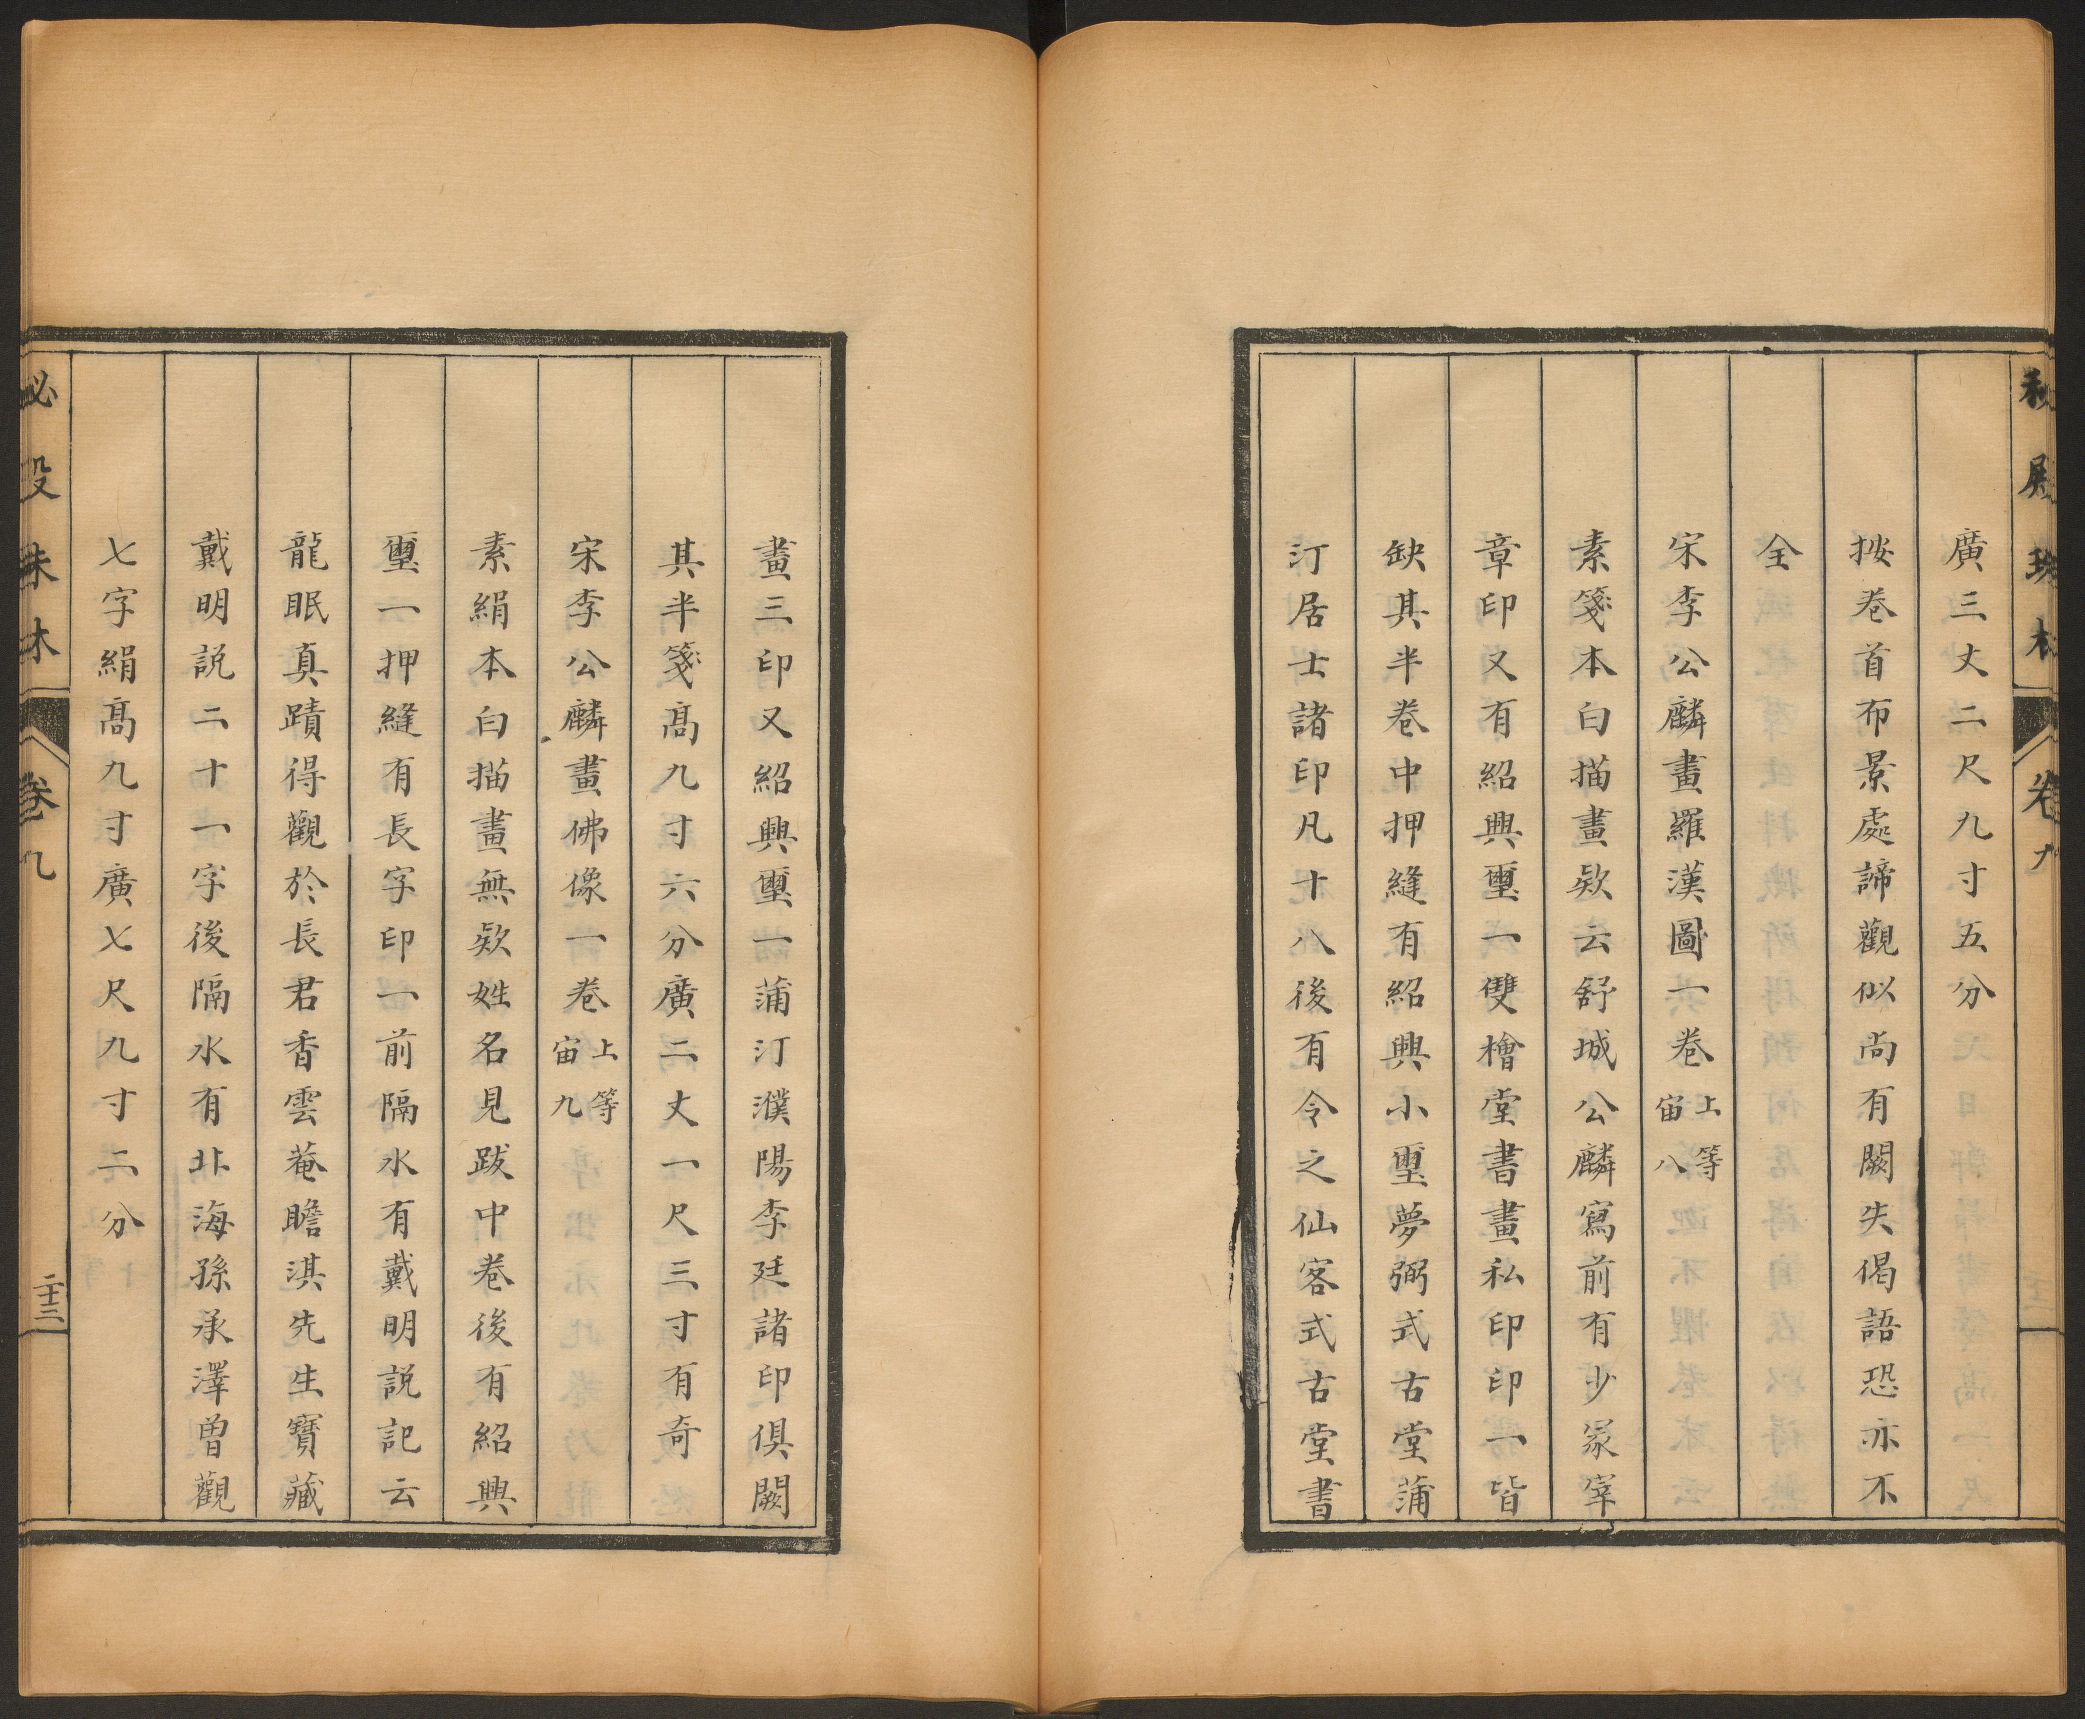 秘殿珠林
卷九
廣三丈二尺九寸五分
按卷首布景處諦觀似尚有闕失偈語恐亦不
全
宋李公麟畫羅漢圖一卷上等宙八
素箋本白描畫欵云舒城公麟寫前有少冢宰
章印又有紹興璽一雙檜堂書畫私印印一皆
缺其半卷中押縫有紹興小璽夢弼式古堂蒲
汀居士諸印凡十八後有令之仙客式古堂書
畫三印又紹興璽一蒲汀濮陽李廷諸印俱闕
其半箋高九寸六分廣二丈一尺三寸有奇
宋李公麟畫佛像一卷上等宙九
素絹本白描畫無欵姓名見跋中卷後有紹興
璽一押縫有長字印一前隔水有戴明説記云
龍眠真蹟得觀於長君香雲菴瞻淇先生寶藏
戴明説二十一字後隔水有北海孫承澤曽觀
七字絹高九寸廣七尺九寸二分
秘殿珠林
卷九
二十三